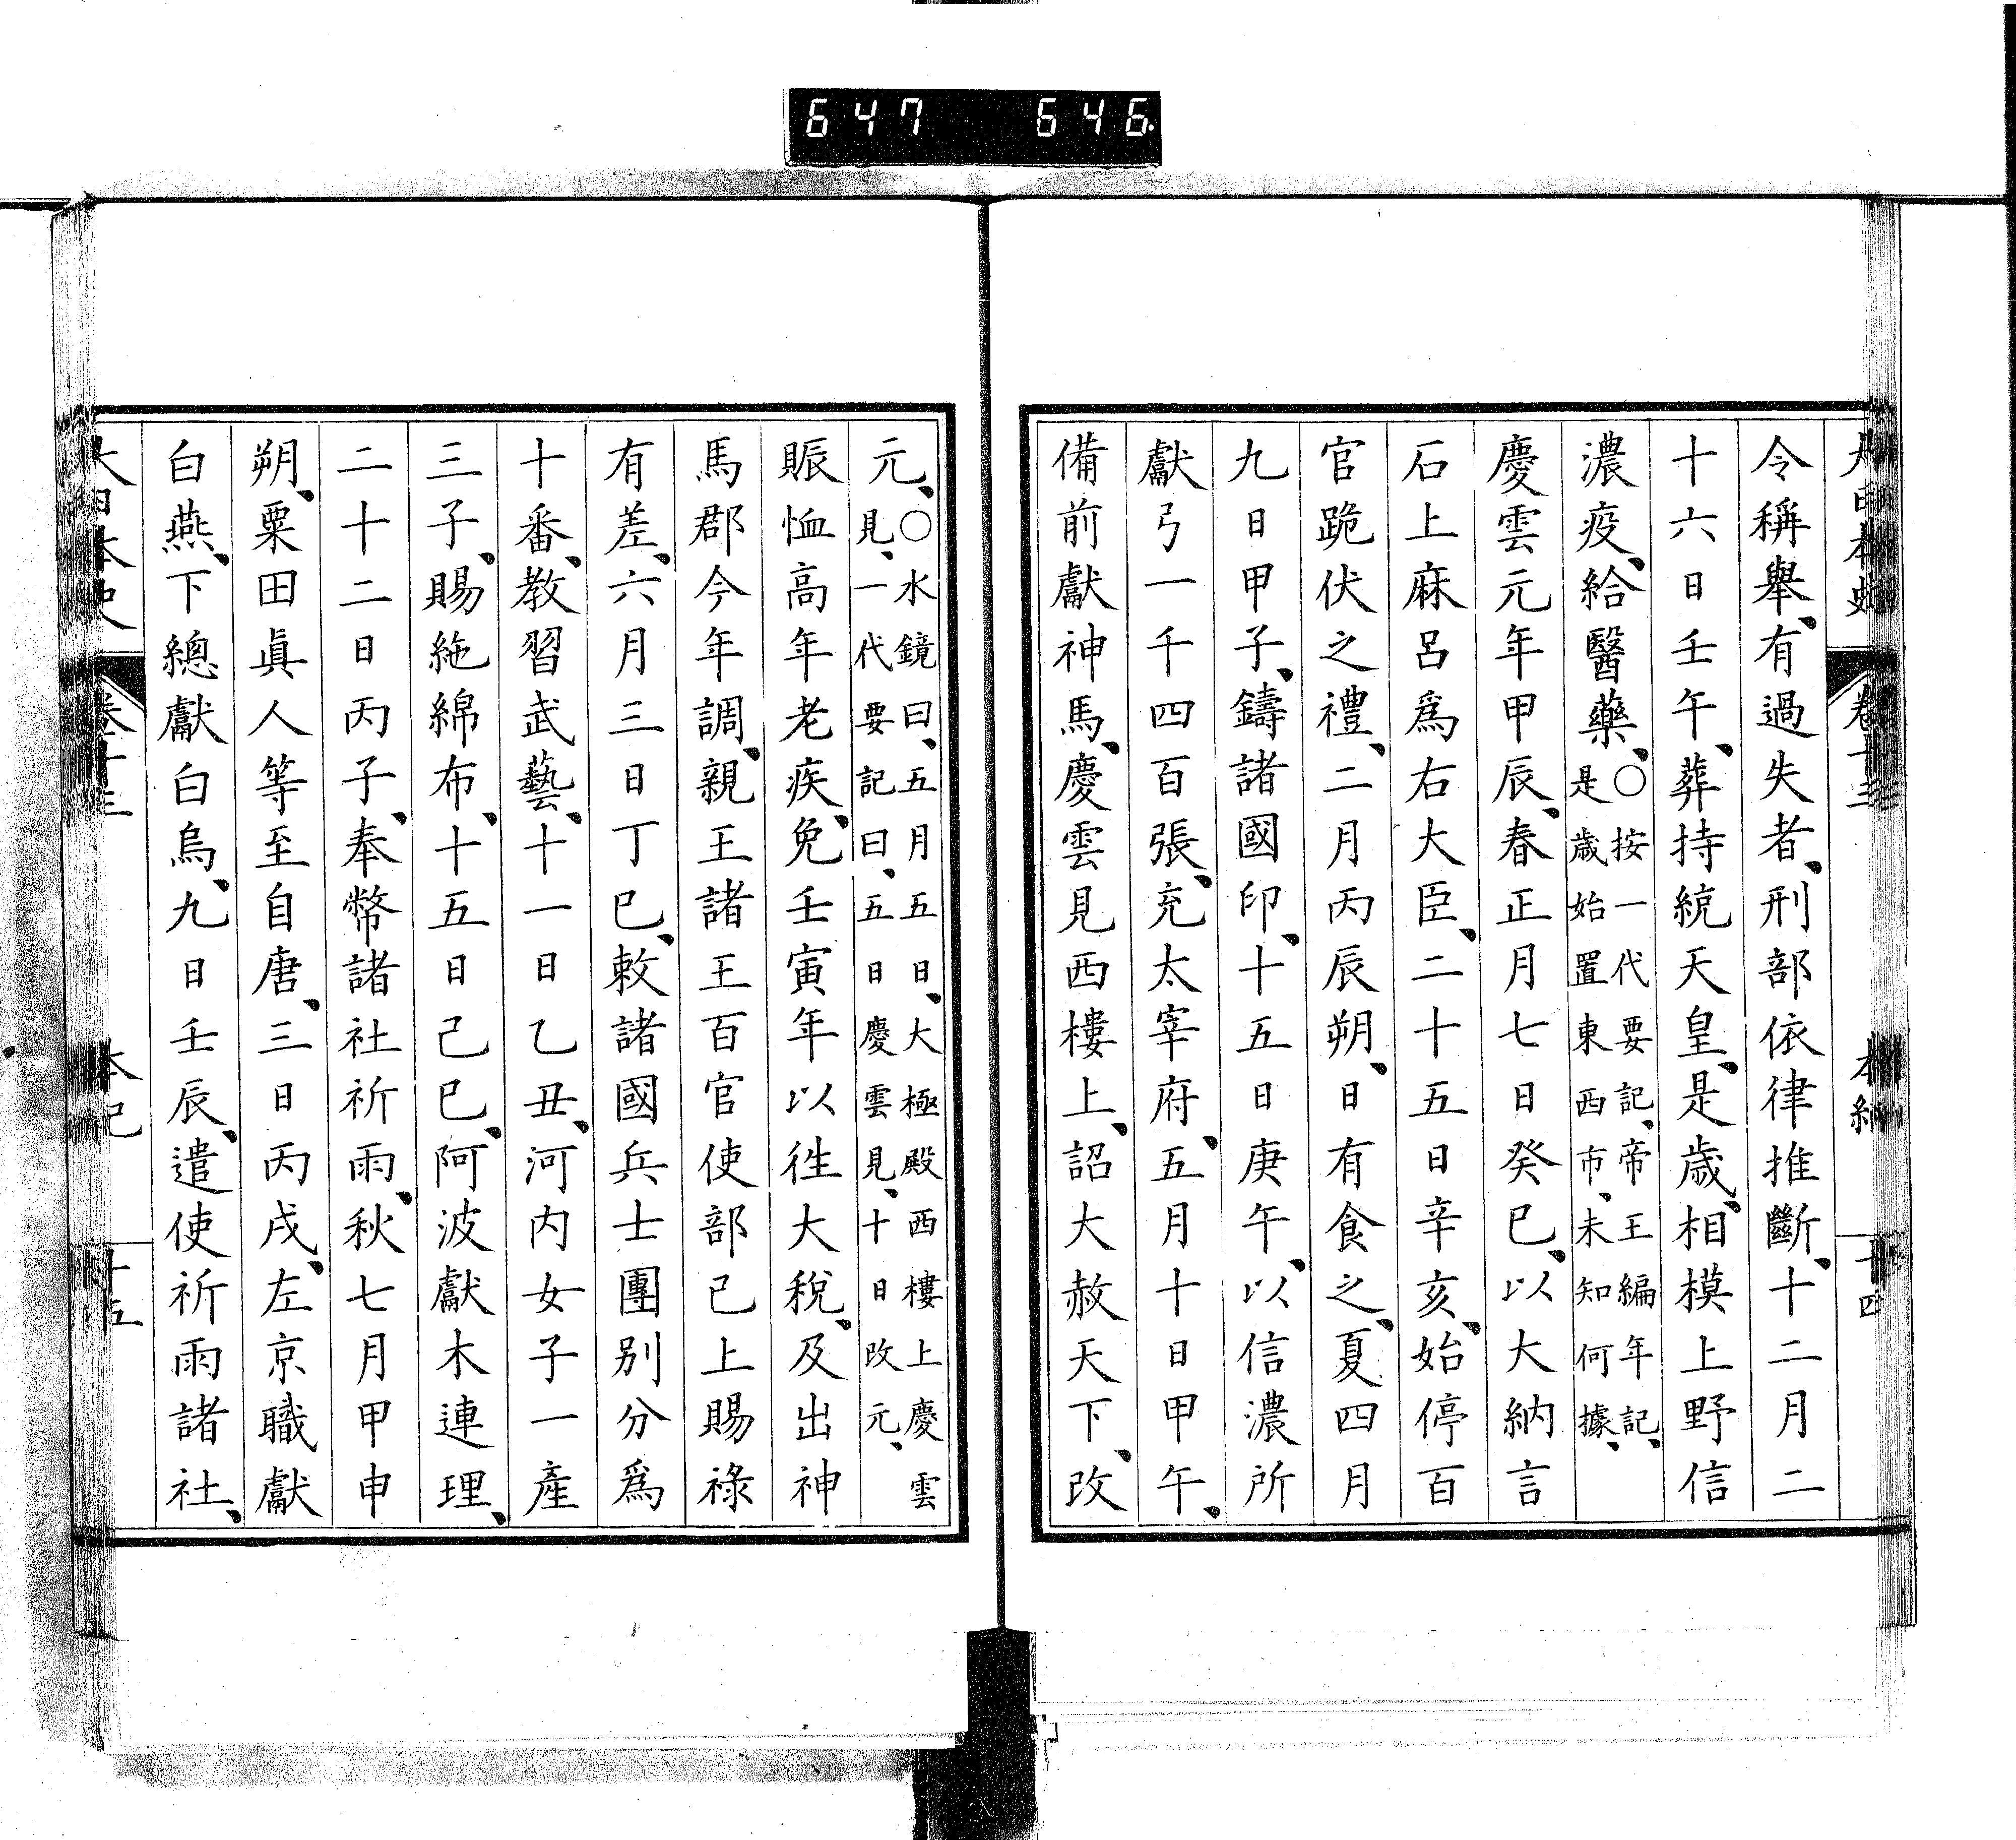 647 646
大日本史 卷十三 本紀 十四
令稱舉、有過失者、刑部依律推斷、十二月二
十六日壬午、葬持統天皇、是歲、相模上野信
濃疫、給醫藥、○按一代要記、帝王編年記、
是歲始置東西市、未知何據、
慶雲元年甲辰、春正月七日癸巳、以大納言
石上麻呂爲右大臣、二十五日辛亥、始停百
官跪伏之禮、二月丙辰朔、日有食之、夏四月
九日甲子、鑄諸國印、十五日庚午、以信濃所
獻弓一千四百張、充太宰府、五月十日甲午、
備前獻神馬、慶雲見西樓上、詔大赦天下、改
元、○水鏡曰、五月五日、大極殿西樓上慶雲
見、一代要記曰、五日慶雲見、十日改元、
賑恤高年老疾、免壬寅年以徃大稅、及出神
馬郡今年調、親王諸王百官使部已上賜祿
有差、六月三日丁巳、敕諸國兵士團別分爲
十番、教習武藝、十一日乙丑、河内女子一產
三子、賜絁綿布、十五日己巳、阿波獻木連理、
二十二日丙子、奉幣諸社祈雨、秋七月甲申
朔、粟田眞人等至自唐、三日丙戌、左京職獻
白燕、下總獻白烏、九日壬辰、遣使祈雨諸社、
大日本史 卷十三 本紀 十五